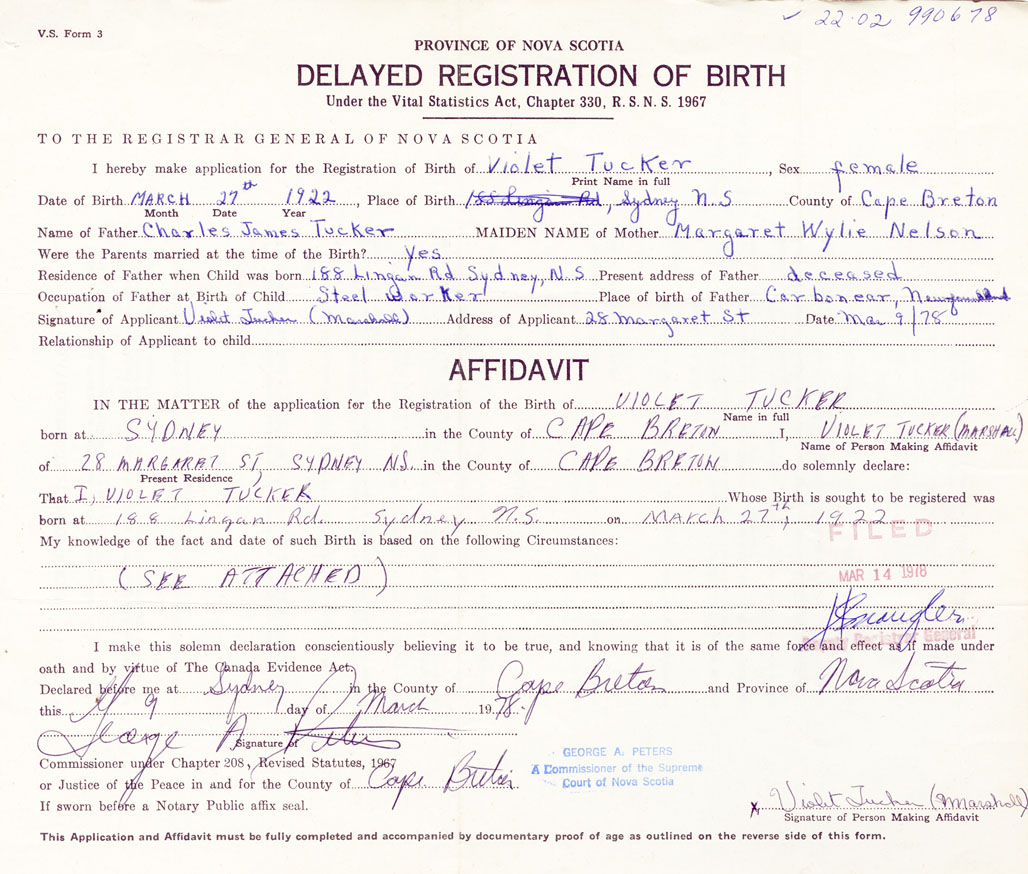 V.S. Form 3
✓ 22-02 990678
PROVINCE OF NOVA SCOTIA
DELAYED REGISTRATION OF BIRTH
Under the Vital Statistics Act, Chapter 330, R.S.N.S. 1967
TO THE REGISTRAR GENERAL OF NOVA SCOTIA
I hereby make application for the Registration of Birth of Violet Tucker, Sex female
Print Name in full
Date of Birth MARCH 27th 1922, Place of Birth 188 Lingan Rd, Sydney N.S County of Cape Breton
Month Date Year
Name of Father Charles James Tucker MAIDEN NAME of Mother Margaret Wylie Nelson
Were the Parents married at the time of the Birth? Yes
Residence of Father when Child was born 188 Lingan Rd Sydney, N.S Present address of Father deceased
Occupation of Father at Birth of Child Steel Worker Place of birth of Father Carbonear, Newfoundland
Signature of Applicant Violet Tucker (Marshall) Address of Applicant 28 Margaret St Date Mar 9/78
Relationship of Applicant to child
AFFIDAVIT
IN THE MATTER of the application for the Registration of the Birth of VIOLET TUCKER
Name in full
born at SYDNEY in the County of CAPE BRETON I, VIOLET TUCKER (MARSHALL)
Name of Person Making Affidavit
of 28 MARGARAT ST, SYDNEY NS. in the County of CAPE BRETON do solemnly declare:
Present Residence
That I, VIOLET TUCKER Whose Birth is sought to be registered was
born at 188 Lingan Rd. Sydney N.S. on MARCH 27th, 1922
FILED
My knowledge of the fact and date of such Birth is based on the following Circumstances:
(SEE ATTACHED)
MAR 14 1978
Deputy Registrar General
I make this solemn declaration conscientiously believing it to be true, and knowing that it is of the same force and effect as if made under
oath and by virtue of The Canada Evidence Act.
Declared before me at Sydney in the County of Cape Breton and Province of Nova Scotia
this 9 day of March 1978.
George A. Peters
Signature of
Commissioner under Chapter 208, Revised Statutes, 1967
or Justice of the Peace in and for the County of Cape Breton
If sworn before a Notary Public affix seal.
GEORGE A. PETERS
A Commissioner of the Supreme
Court of Nova Scotia
x Violet Tucker (Marshall)
Signature of Person Making Affidavit
This Application and Affidavit must be fully completed and accompanied by documentary proof of age as outlined on the reverse side of this form.